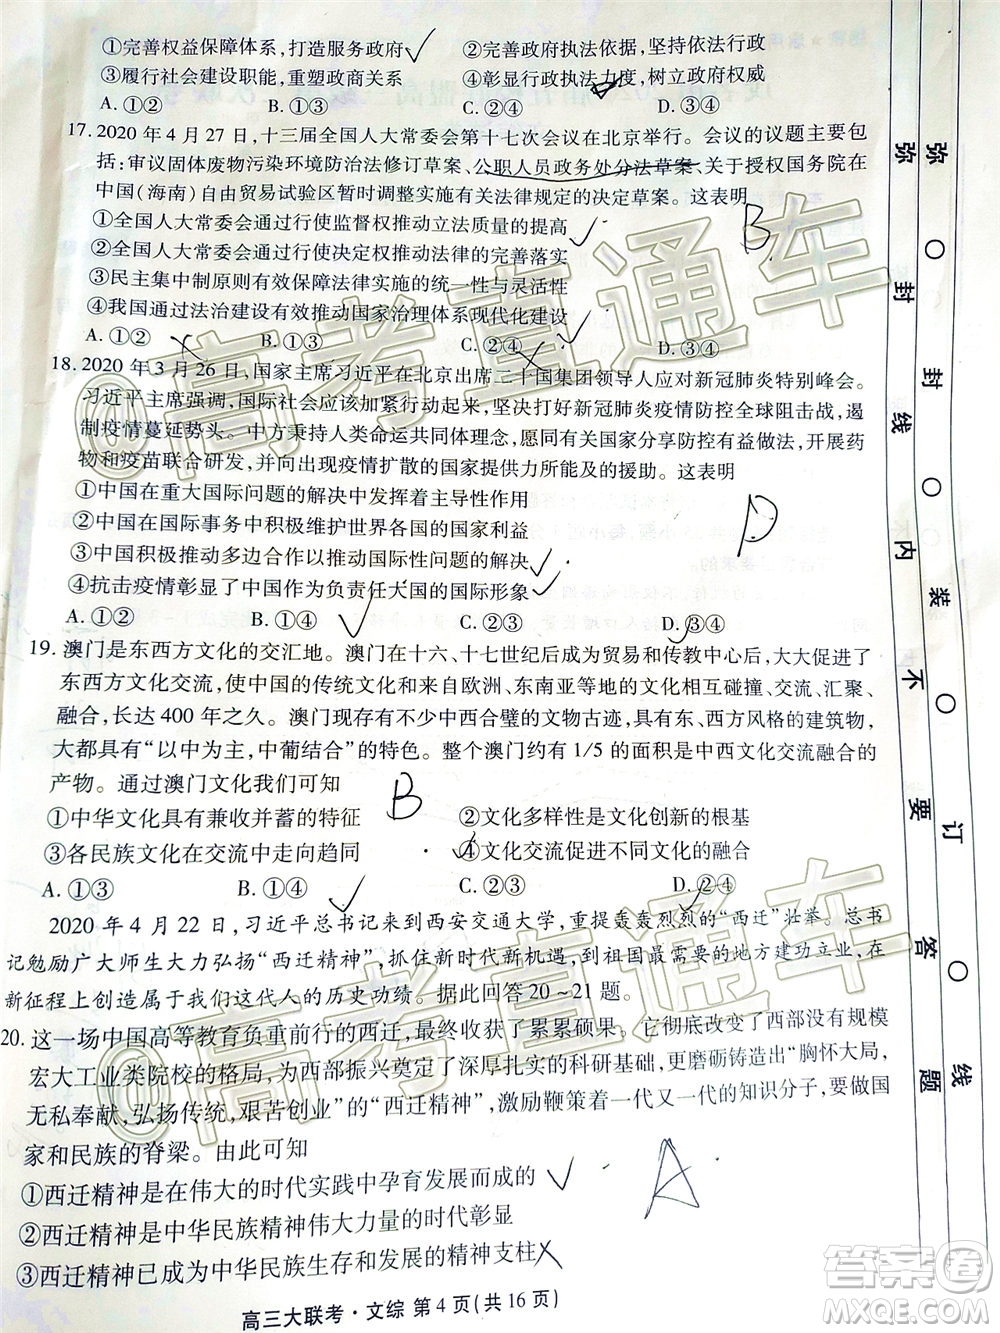 ①完善权益保障体系,打造服务政府 ②完善政府执法依据,坚持依法行政
③履行社会建设职能,重塑政商关系 ④提升政府执法力度,树立政府权威
A. ①② B. ①③ C. ②④ D. ③④
17. 2020 年 4 月 27 日,十三届全国人大常委会第十七次会议在北京举行。会议的议题主要包
括:审议固体废物污染环境防治法修订草案、公职人员政务处分法草案、关于授权国务院在
中国(海南)自由贸易试验区暂时调整实施有关法律规定的决定草案。这表明
①全国人大常委会通过行使监督权推动立法质量的提高
②全国人大常委会通过行使决定权推动法律的完善落实
③民主集中制原则有效保证法律实施的统一性与灵活性
④我国通过法治建设有效推动国家治理体系现代化建设
A. ①② B. ①③ C. ②④ D. ③④
B
18. 2020 年 3 月 26 日,国家主席习近平在北京出席二十国集团领导人应对新冠肺炎特别峰会。
习近平主席强调,国际社会应该加紧行动起来,坚决打好新冠肺炎疫情防控全球阻击战,遏
制疫情蔓延势头。中方秉持人类命运共同体理念,愿同有关国家分享防控有益做法,开展药
物和疫苗联合研发,并向出现疫情扩散的国家提供力所能及的援助。这表明
①中国在重大国际问题的解决中发挥着主导性作用
②中国在国际事务中积极维护世界各国的国家利益
③中国积极推动多边合作以推动国际性问题的解决
④抗击疫情彰显了中国作为负责任大国的国际形象
A. ①② B. ①③ C. ②④ D. ③④
D
19. 澳门是东西方文化的交汇地。澳门在十六、十七世纪后成为贸易和传教中心后,大大促进了
东西方文化交流,使中国的传统文化和来自欧洲、东南亚等地的文化相互碰撞、交流、汇聚、
融合,长达 400 年之久。澳门现存有不少中西合璧的文物古迹,具有东、西方风格的建筑物,
大都具有“以中为主,中葡结合”的特色。整个澳门约有 1/5 的面积是中西文化交流融合的
产物。通过澳门文化我们可知
B
①中华文化具有兼收并蓄的特征 ②文化多样性是文化创新的根基
③各民族文化在交流中走向趋同 ④文化交流促进不同文化的融合
A. ①③ B. ①④ C. ②③ D. ②④
2020 年 4 月 22 日,习近平总书记来到西安交通大学,重提轰轰烈烈的“西迁”壮举。总书
记勉励广大师生大力弘扬“西迁精神”,抓住新时代新机遇,到祖国最需要的地方建功立业,在
新征程上创造属于我们这代人的历史功绩。据此回答20~21题。
20. 这一场中国高等教育负重前行的西迁,最终收获了累累硕果。它彻底改变了西部没有规模
宏大工业类院校的格局,为西部振兴奠定了深厚扎实的科研基础,更磨砺铸造出“胸怀大局,
无私奉献,弘扬传统,艰苦创业”的“西迁精神”,激励鞭策着一代又一代的知识分子,要做国
家和民族的脊梁。由此可知
①西迁精神是在伟大的时代实践中孕育发展而成的
②西迁精神是中华民族精神伟大力量的时代彰显
③西迁精神已成为中华民族生存和发展的精神支柱
A
高三大联考·文综 第 4 页(共 16 页)
弥 封 线 内 不 要 答 题
弥 封 装 订 线
@高考直通车
@高考直通车
答案圈
MXQE.COM